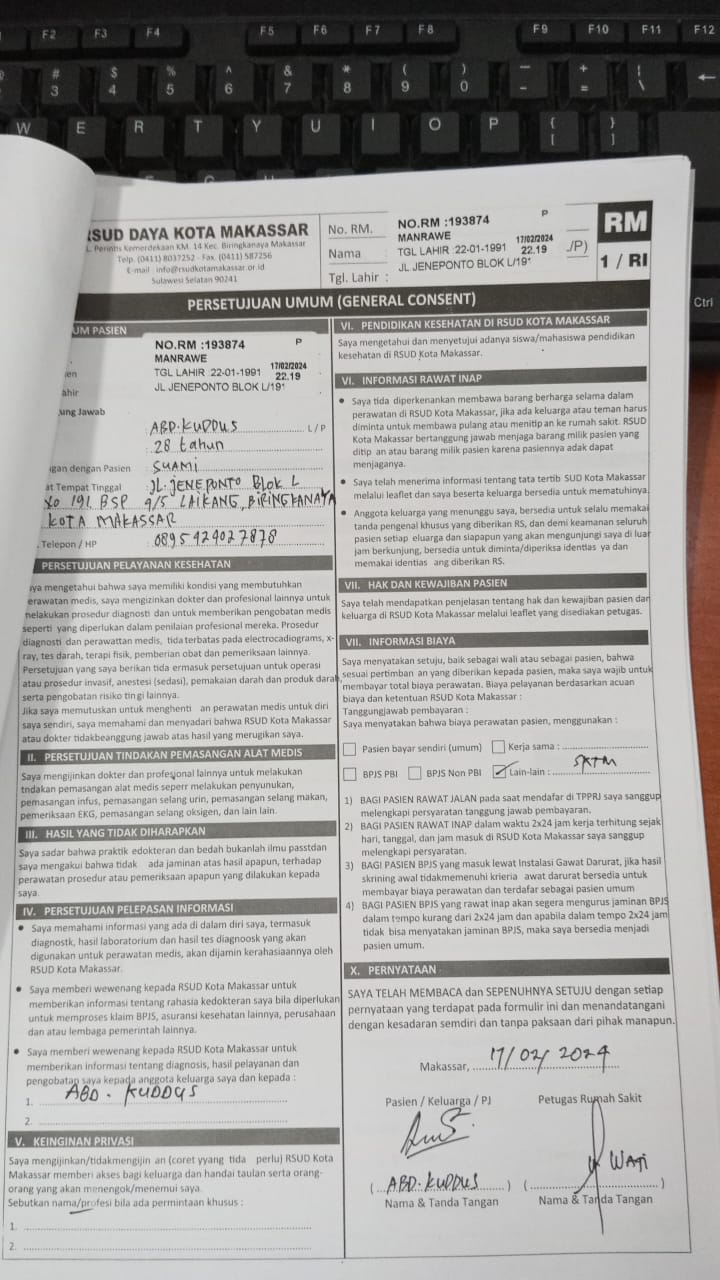 F2 F3 F4 F5 F6 F7 F8 F9 F10 F11 F12
# $ % ^ & * ( ) — + |
3 4 5 6 7 8 9 0 - = \
W E R T Y U I O P { }
[ ]
Ctrl
RSUD DAYA KOTA MAKASSAR
L. Perintis Kemerdekaan KM. 14 Kec. Biringkanaya Makassar
Telp. (0411) 8037252 - Fax. (0411) 587256
E-mail : info@rsudkotamakassar.or.id
Sulawesi Selatan 90241
No. RM.
Nama
Tgl. Lahir :
NO.RM :193874 P
MANRAWE 17/02/2024
TGL LAHIR :22-01-1991 22.19
JL JENEPONTO BLOK L/191
./P)
RM
1 / RI
PERSETUJUAN UMUM (GENERAL CONSENT)
UM PASIEN
NO.RM :193874 P
MANRAWE 17/02/2024
TGL LAHIR :22-01-1991 22.19
JL JENEPONTO BLOK L/191
ien
ahir
ung Jawab
: ABD. KUDDUS L/P
: 28 tahun
ngan dengan Pasien : SUAMI
at Tempat Tinggal : JL. JENEPONTO Blok L
No 191 BSP 9/5 LAIKANG, BIRINGKANAYA
KOTA MAKASSAR
. Telepon / HP : 0895424027878
PERSETUJUAN PELAYANAN KESEHATAN
ya mengetahui bahwa saya memiliki kondisi yang membutuhkan
erawatan medis, saya mengizinkan dokter dan profesional lainnya untuk
melakukan prosedur diagnosti dan untuk memberikan pengobatan medis
seperti yang diperlukan dalam penilaian profesional mereka. Prosedur
diagnosti dan perawattan medis, tida terbatas pada electrocadiograms, x-
ray, tes darah, terapi fisik, pemberian obat dan pemeriksaan lainnya.
Persetujuan yang saya berikan tida ermasuk persetujuan untuk operasi
atau prosedur invasif, anestesi (sedasi), pemakaian darah dan produk darah,
serta pengobatan risiko tingi lainnya.
Jika saya memutuskan untuk menghenti an perawatan medis untuk diri
saya sendiri, saya memahami dan menyadari bahwa RSUD Kota Makassar
atau dokter tidakbeanggung jawab atas hasil yang merugikan saya.
II. PERSETUJUAN TINDAKAN PEMASANGAN ALAT MEDIS
Saya mengijinkan dokter dan profesional lainnya untuk melakukan
tndakan pemasangan alat medis seperr melakukan penyunukan,
pemasangan infus, pemasangan selang urin, pemasangan selang makan,
pemeriksaan EKG, pemasangan selang oksigen, dan lain lain.
III. HASIL YANG TIDAK DIHARAPKAN
Saya sadar bahwa praktik edokteran dan bedah bukanlah ilmu passtdan
saya mengakui bahwa tidak ada jaminan atas hasil apapun, terhadap
perawatan prosedur atau pemeriksaan apapun yang dilakukan kepada
saya.
IV. PERSETUJUAN PELEPASAN INFORMASI
• Saya memahami informasi yang ada di dalam diri saya, termasuk
diagnostk, hasil laboratorium dan hasil tes diagnoosk yang akan
digunakan untuk perawatan medis, akan dijamin kerahasiaannya oleh
RSUD Kota Makassar.
• Saya memberi wewenang kepada RSUD Kota Makassar untuk
memberikan informasi tentang rahasia kedokteran saya bila diperlukan
untuk memproses klaim BPJS, asuransi kesehatan lainnya, perusahaan
dan atau lembaga pemerintah lainnya.
• Saya memberi wewenang kepada RSUD Kota Makassar untuk
memberikan informasi tentang diagnosis, hasil pelayanan dan
pengobatan saya kepada anggota keluarga saya dan kepada :
1. ABD. KUDDUS
2.
V. KEINGINAN PRIVASI
Saya mengijinkan/tidakmengijin an (coret yyang tida perlu) RSUD Kota
Makassar memberi akses bagi keluarga dan handai taulan serta orang-
orang yang akan menengok/menemui saya.
Sebutkan nama/profesi bila ada permintaan khusus :
1.
2.
VI. PENDIDIKAN KESEHATAN DI RSUD KOTA MAKASSAR
Saya mengetahui dan menyetujui adanya siswa/mahasiswa pendidikan
kesehatan di RSUD Kota Makassar.
VI. INFORMASI RAWAT INAP
• Saya tida diperkenankan membawa barang berharga selama dalam
perawatan di RSUD Kota Makassar, jika ada keluarga atau teman harus
diminta untuk membawa pulang atau menitip an ke rumah sakit. RSUD
Kota Makassar bertanggung jawab menjaga barang milik pasien yang
ditip an atau barang milik pasien karena pasiennya adak dapat
menjaganya.
• Saya telah menerima informasi tentang tata tertib SUD Kota Makassar
melalui leaflet dan saya beserta keluarga bersedia untuk mematuhinya.
• Anggota keluarga yang menunggu saya, bersedia untuk selalu memakai
tanda pengenal khusus yang diberikan RS, dan demi keamanan seluruh
pasien setiap eluarga dan siapapun yang akan mengunjungi saya di luar
jam berkunjung, bersedia untuk diminta/diperiksa identias ya dan
memakai identias ang diberikan RS.
VII. HAK DAN KEWAJIBAN PASIEN
Saya telah mendapatkan penjelasan tentang hak dan kewajiban pasien dan
keluarga di RSUD Kota Makassar melalui leaflet yang disediakan petugas.
VII. INFORMASI BIAYA
Saya menyatakan setuju, baik sebagai wali atau sebagai pasien, bahwa
sesuai pertimban an yang diberikan kepada pasien, maka saya wajib untuk
membayar total biaya perawatan. Biaya pelayanan berdasarkan acuan
biaya dan ketentuan RSUD Kota Makassar :
Tanggungjawab pembayaran :
Saya menyatakan bahwa biaya perawatan pasien, menggunakan :
Pasien bayar sendiri (umum) Kerja sama :
BPJS PBI BPJS Non PBI Lain-lain : SKTM
1) BAGI PASIEN RAWAT JALAN pada saat mendafar di TPPRJ saya sanggup
melengkapi persyaratan tanggung jawab pembayaran.
2) BAGI PASIEN RAWAT INAP dalam waktu 2x24 jam kerja terhitung sejak
hari, tanggal, dan jam masuk di RSUD Kota Makassar saya sanggup
melengkapi persyaratan.
3) BAGI PASIEN BPJS yang masuk lewat Instalasi Gawat Darurat, jika hasil
skrining awal tidakmemenuhi krieria awat darurat bersedia untuk
membayar biaya perawatan dan terdafar sebagai pasien umum
4) BAGI PASIEN BPJS yang rawat inap akan segera mengurus jaminan BPJS
dalam tempo kurang dari 2x24 jam dan apabila dalam tempo 2x24 jam
tidak bisa menyatakan jaminan BPJS, maka saya bersedia menjadi
pasien umum.
X. PERNYATAAN
SAYA TELAH MEMBACA dan SEPENUHNYA SETUJU dengan setiap
pernyataan yang terdapat pada formulir ini dan menandatangani
dengan kesadaran semdiri dan tanpa paksaan dari pihak manapun.
Makassar, 17/02/2024
Pasien / Keluarga / PJ Petugas Rumah Sakit
WATI
( ABD. KUDDUS ) ( )
Nama & Tanda Tangan Nama & Tanda Tangan